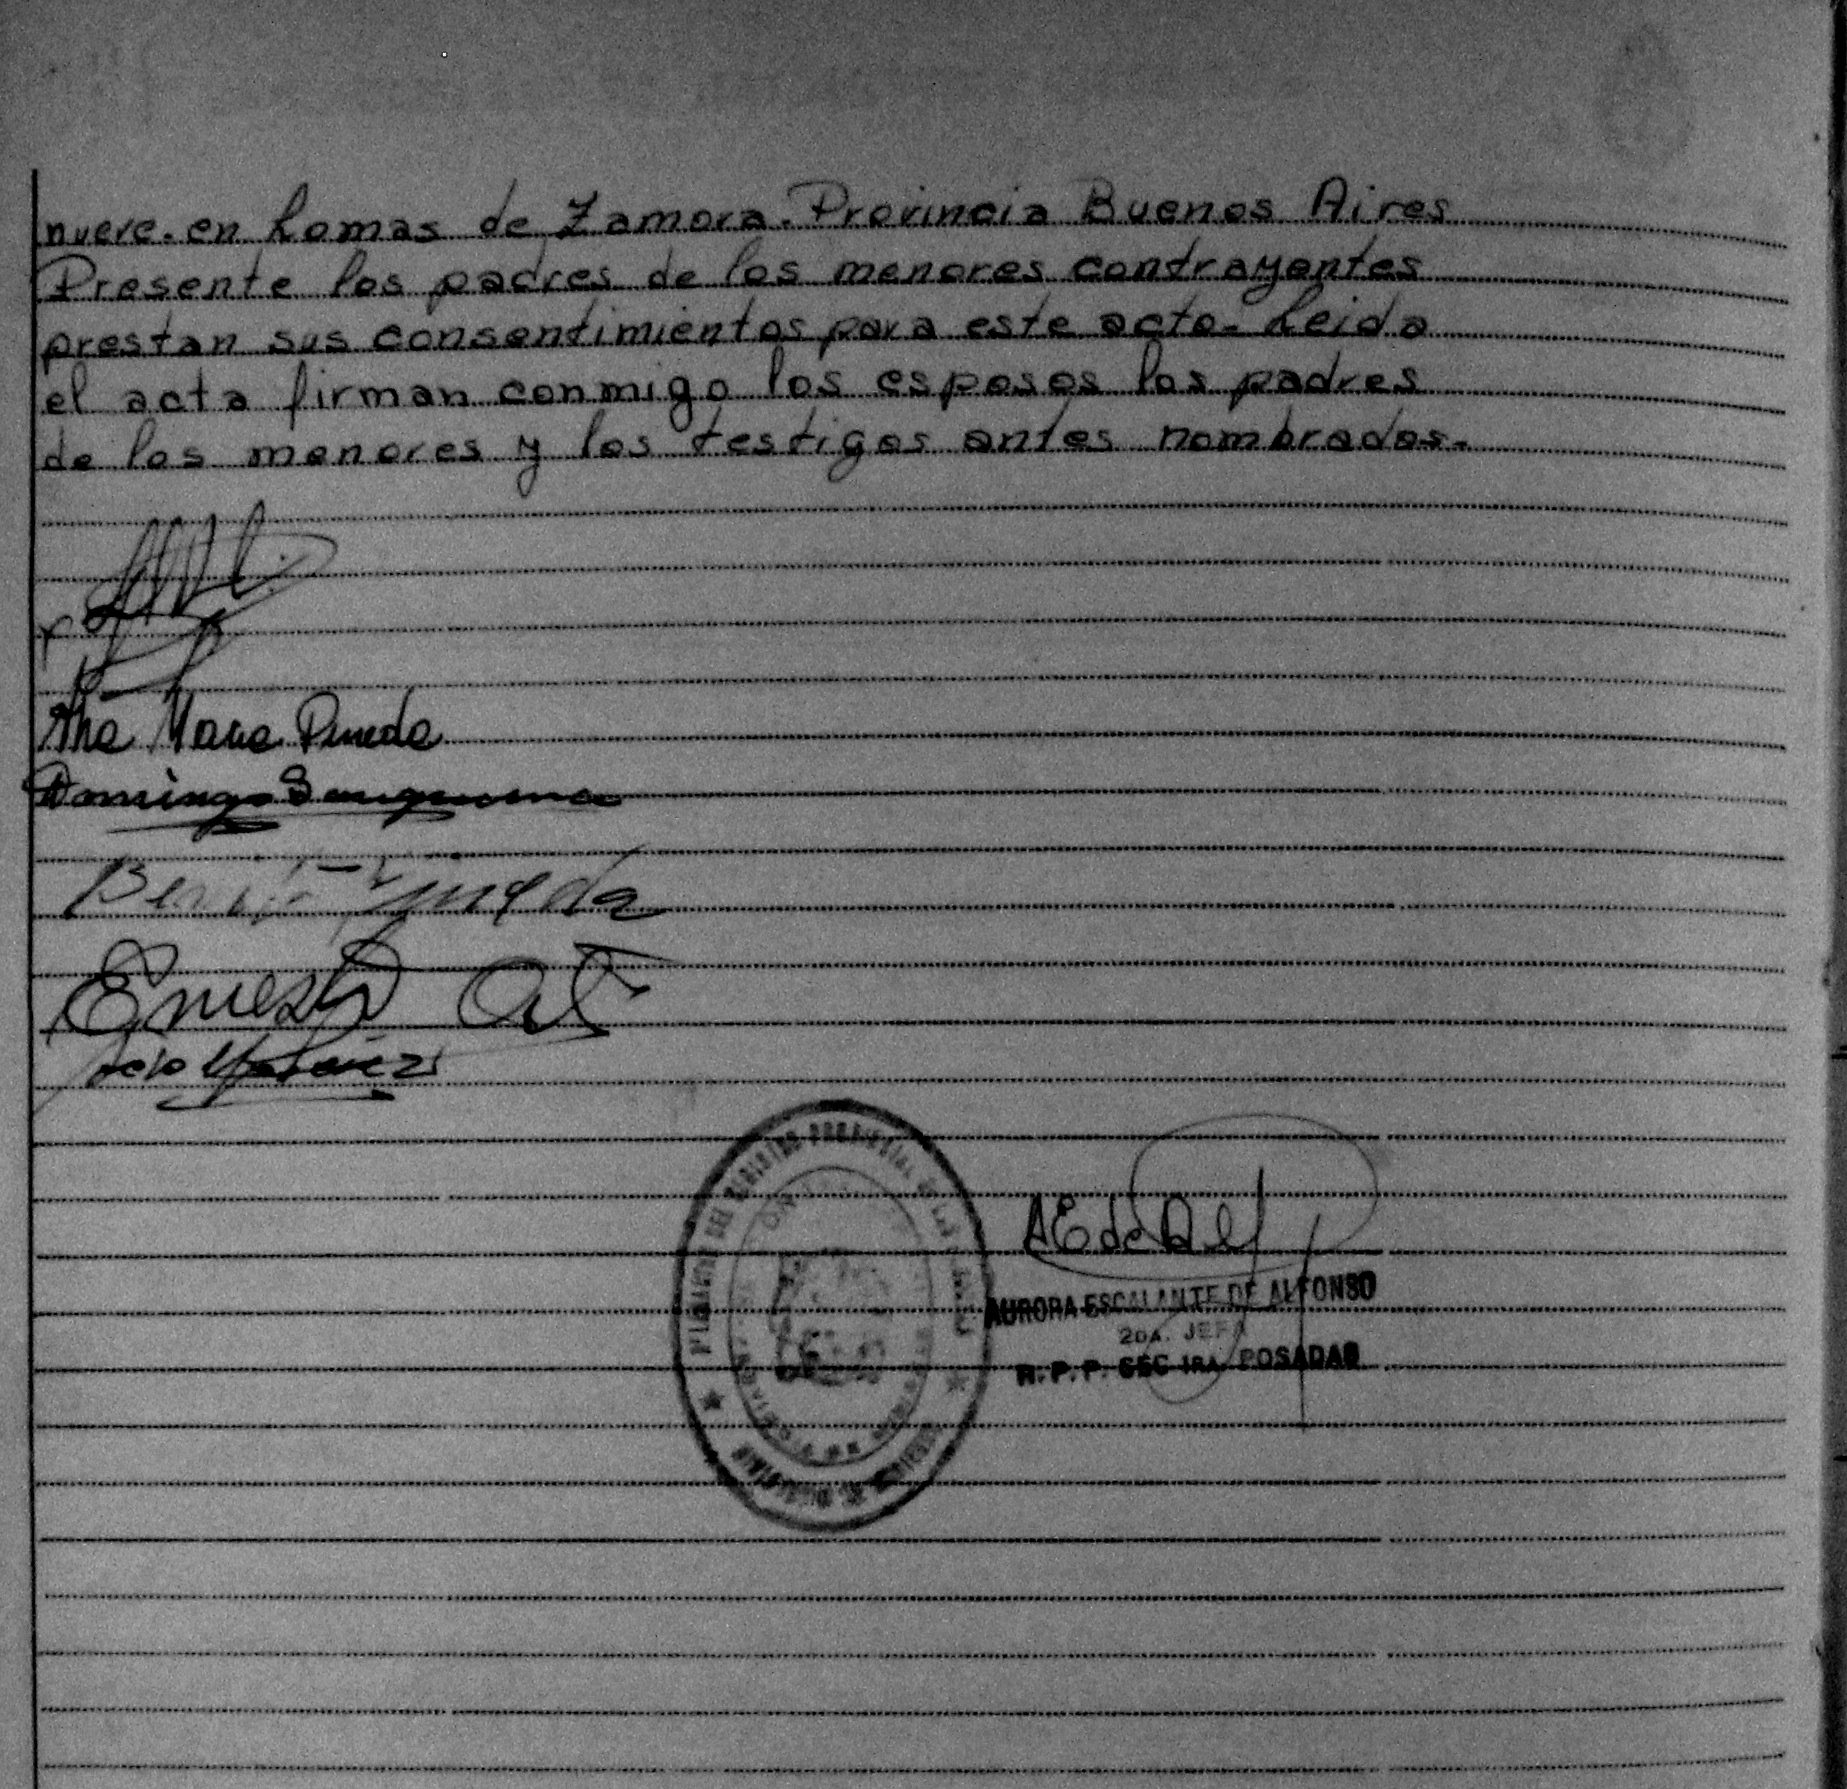 nueve. en Lomas de Zamora. Provincia Buenos Aires
Presente los padres de los menores contrayentes
prestan sus consentimientos para este acto. Leida
el acta firman conmigo los esposos los padres
de los menores y los testigos antes nombrados.
Ana Maria Pineda
Domingo
Pineda
Ernesto
AE de Alf
AURORA ESCALANTE DE ALFONSO
2DA. JEFA
R. P. P. SEC 1RA. POSADAS